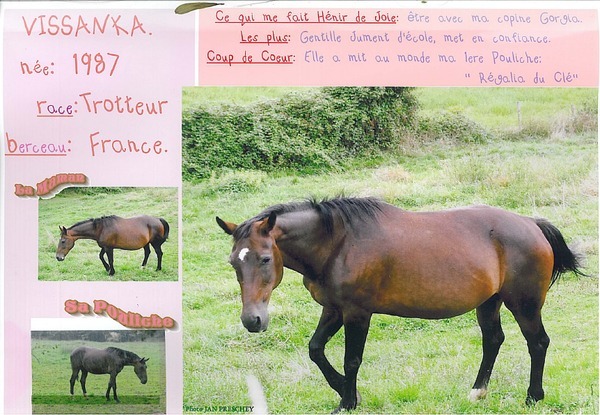 VISSANKA.
née: 1987
race: Trotteur
berceau: France.
Ce qui me fait Hénir de Joie: être avec ma copine Gorgia.
Les plus: Gentille Jument d'école, met en confiance.
Coup de Coeur: Elle a mit au monde ma 1ere Pouliche:
" Régalia du Clé"
La Maman
Sa POuliche
Photo JAN PRESCHEY